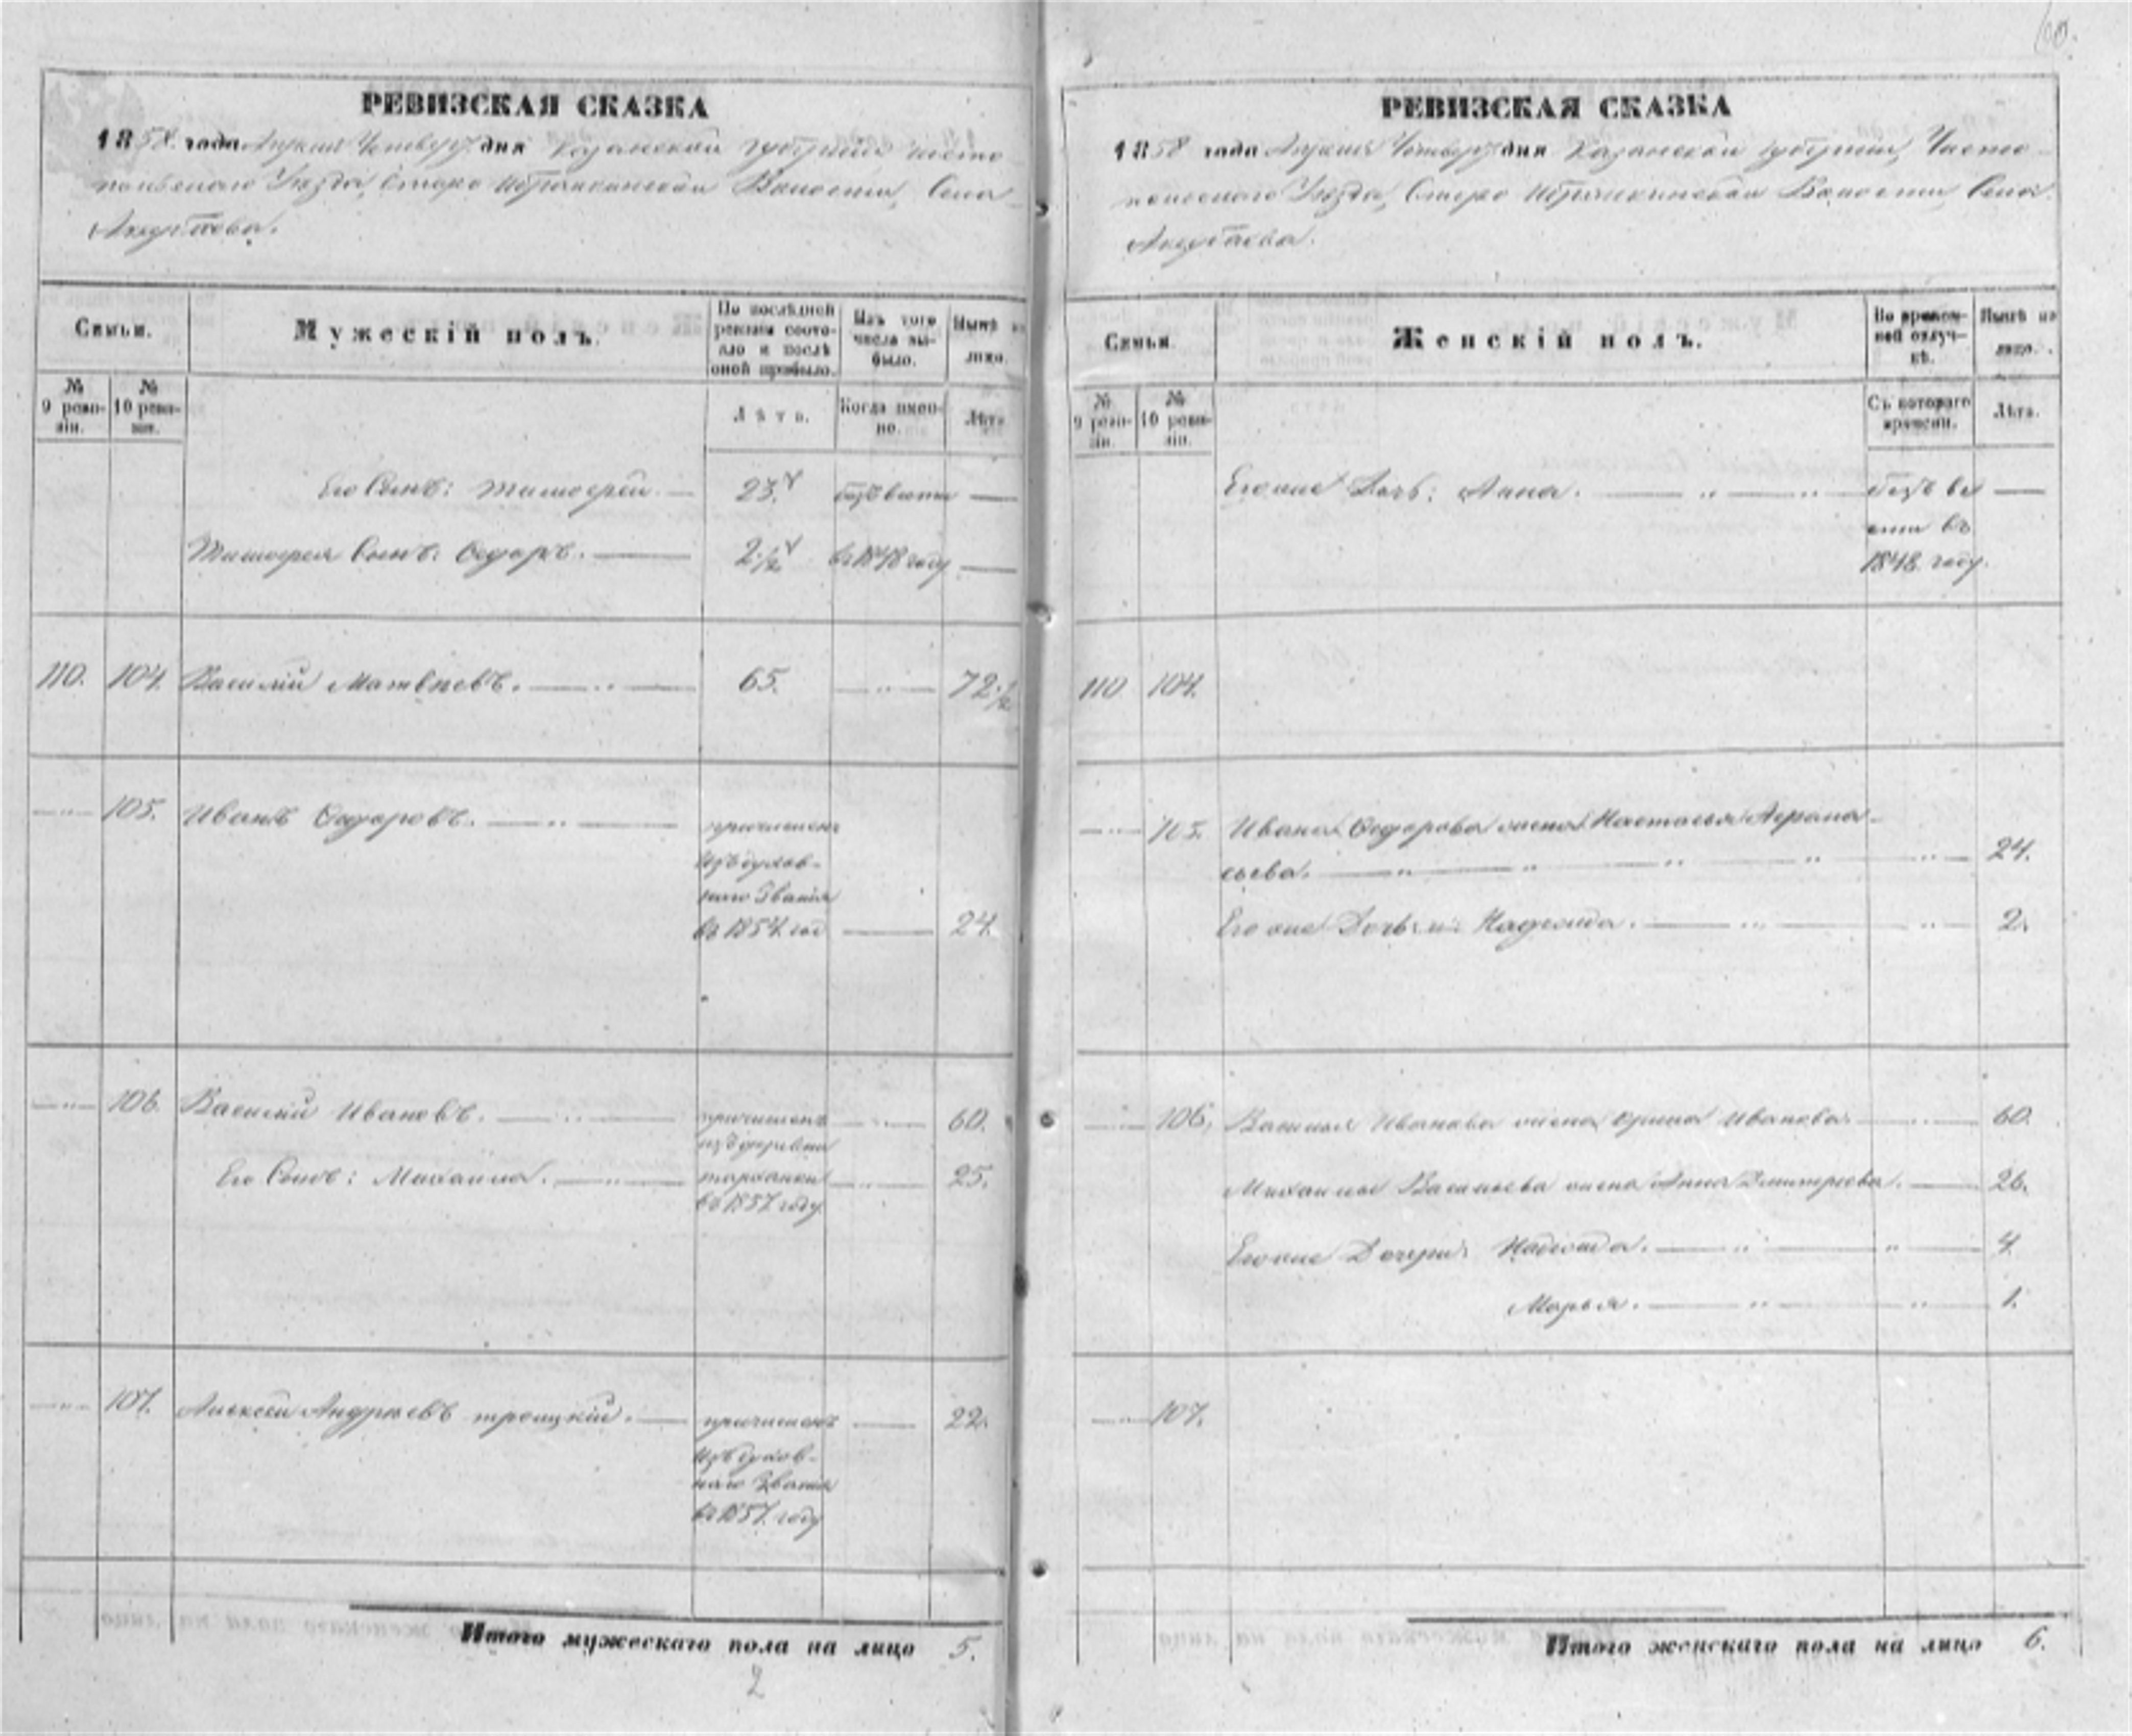 РЕВИЗСКАЯ СКАЗКА
1858 года Апреля Четверт. дня Казанской губернии Чисто-
польскаго Уезда, Старо Ибрайкинской Волости, Села
Акубаева.
Семьи.
Мужескій полъ.
По послѣдней ревизіи состо-яло и послѣ оной прибыло.
Изъ того числа вы-было.
Нынѣ на лицо.
№ 9 реви-зіи.
№ 10 реви-зіи.
Лѣта.
Когда имен-но.
Лѣта.
Его Сынъ: Тимофей. 23. безъвести
Тимофея Сынъ: Ѳедоръ. 2 1/2 въ 1848 году
110. 104. Василій Матвѣевъ. 65. 72 1/2
105. Иванъ Ѳедоровъ. причисленъ
изъ духов-
наго Званія
въ 1854. год 24.
106. Василій Ивановъ. причисленъ 60.
изъ деревни
Его Сынъ: Михайла. 25.
въ 1857 году
107. Алексей Андреевъ троицкій. причисленъ 22.
изъ духов-
наго Званія
въ 1857. году
Итого мужескаго пола на лицо 5.
2
РЕВИЗСКАЯ СКАЗКА
1858 года Апреля Четверт. дня Казанской губернии, Чисто-
польскаго Уезда, Старо Ибрайкинской Волости Села
Акубаева.
Семьи.
Женскій полъ.
Во времен-ной отлуч-кѣ.
Нынѣ на лицо.
№ 9 реви-зіи.
№ 10 реви-зіи.
Съ котораго времени.
Лѣта.
Егоже Дочь: Анна. безъ ве
сти въ
1848. году.
110 104.
105. Ивана Ѳедорова жена Настасья Афрана-
сьева. 24.
Егоже Дочь: Надежда. 2.
106. Василья Иванова жена Ирина Иванова. 60.
Михайлы Васильева жена Анна Дмитриева. 26.
Егоже Дочери: Надежда. 4.
Марья. 1.
107.
Итого женскаго пола на лицо 6.